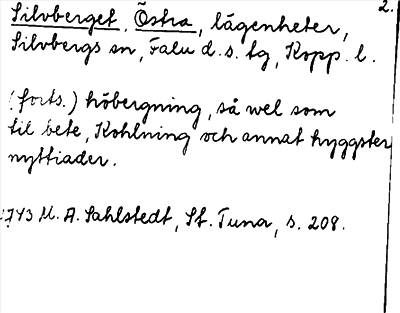 2.
Silvberget, Östra, lägenheter,
Silvbergs sn, Falu d.s. tg, Kopp. l.
(forts.) höbergning, så wel som
til bete, Kohlning och annat hyggster
nyttiader.
1743 M. A. Sahlstedt, St. Tuna, s. 208.